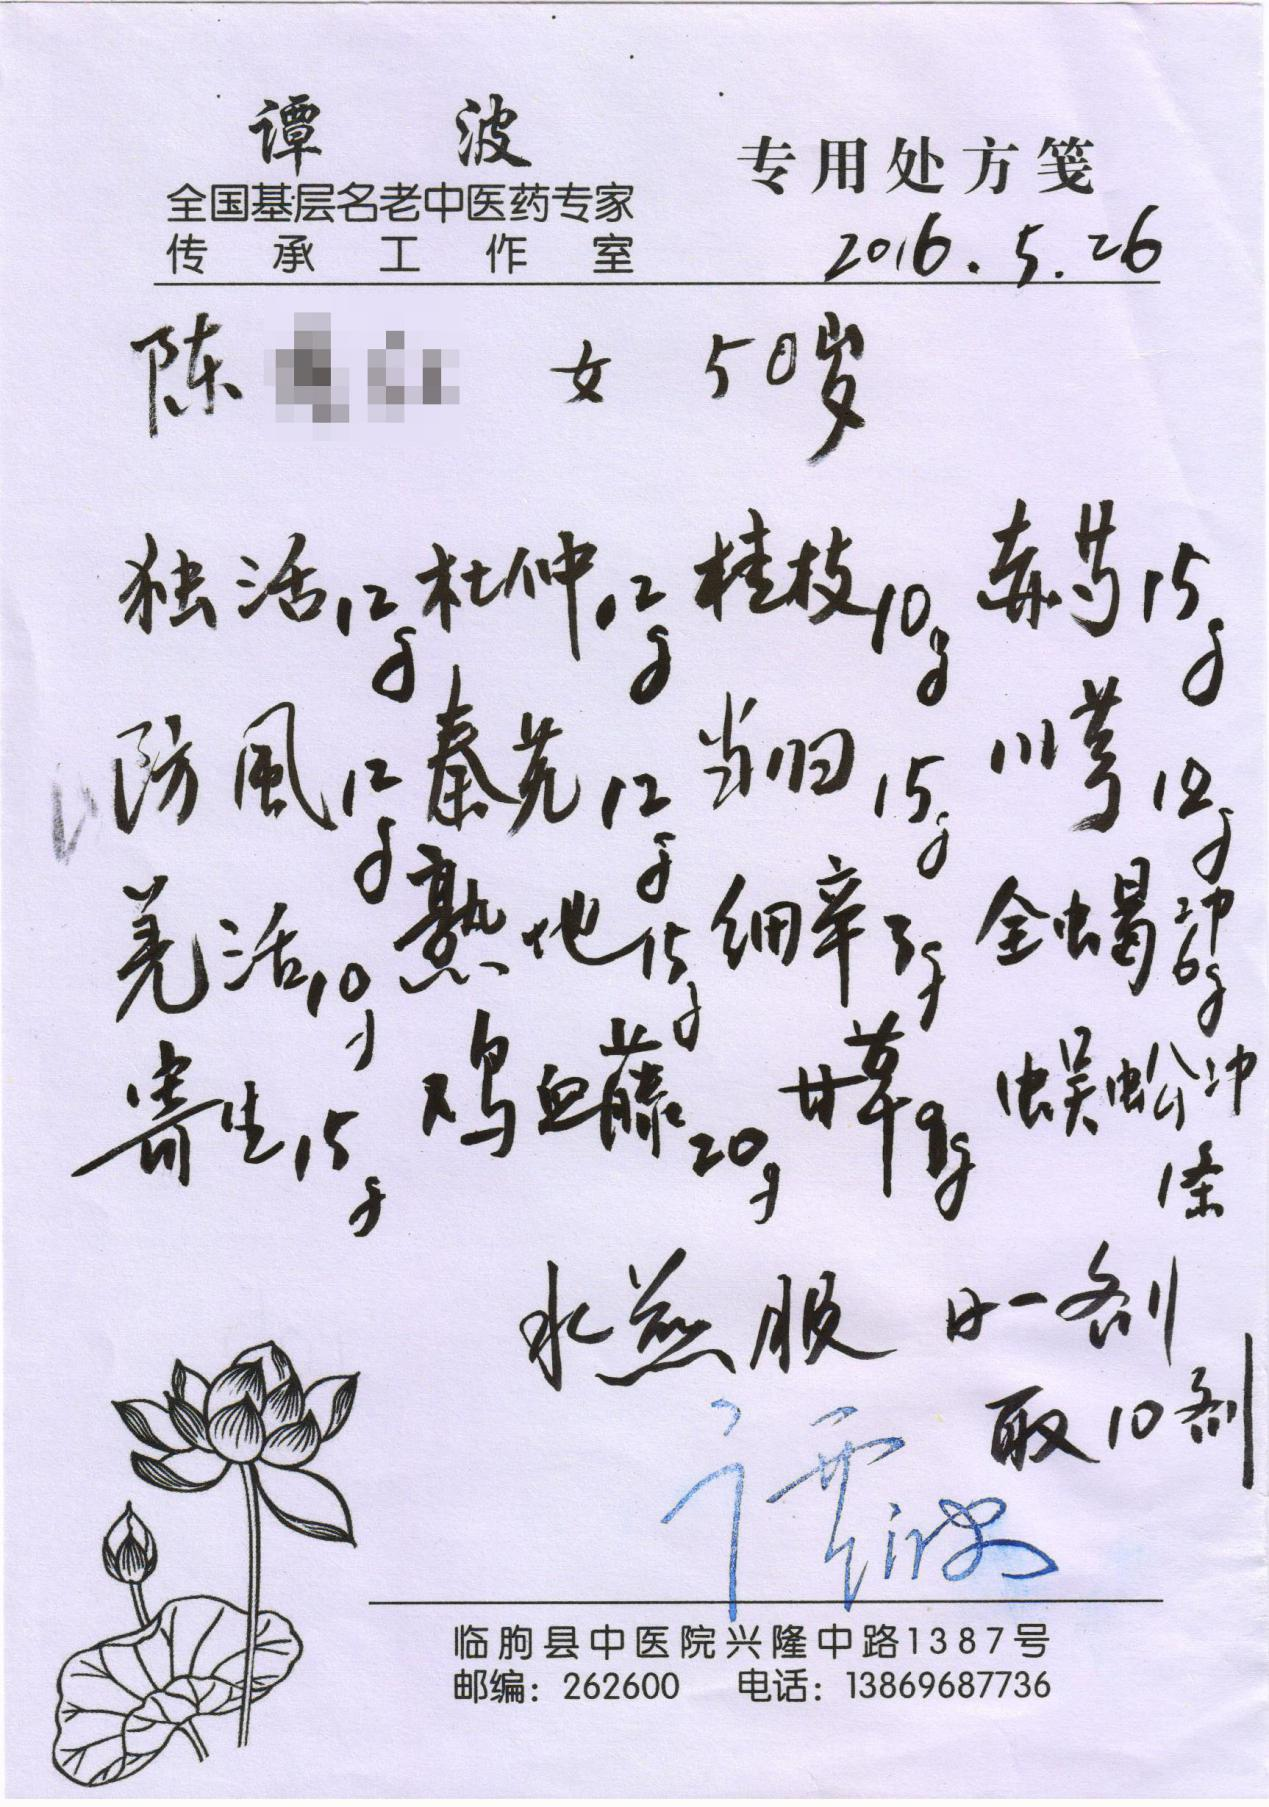 谭波
专用处方笺
全国基层名老中医药专家
传承工作室
2016.5.26
陈 女 50岁
独活12g 杜仲12g 桂枝10g 赤芍15g
防風12g 秦艽12g 当归15g 川芎12g
羌活10g 熟地15g 细辛3g 全虫蝎冲6g
寄生15g 鸡血藤20g 甘草9g 蜈蚣冲1条
水煎服 日一剂
取10剂
谭波
临朐县中医院兴隆中路1387号
邮编：262600 电话：13869687736